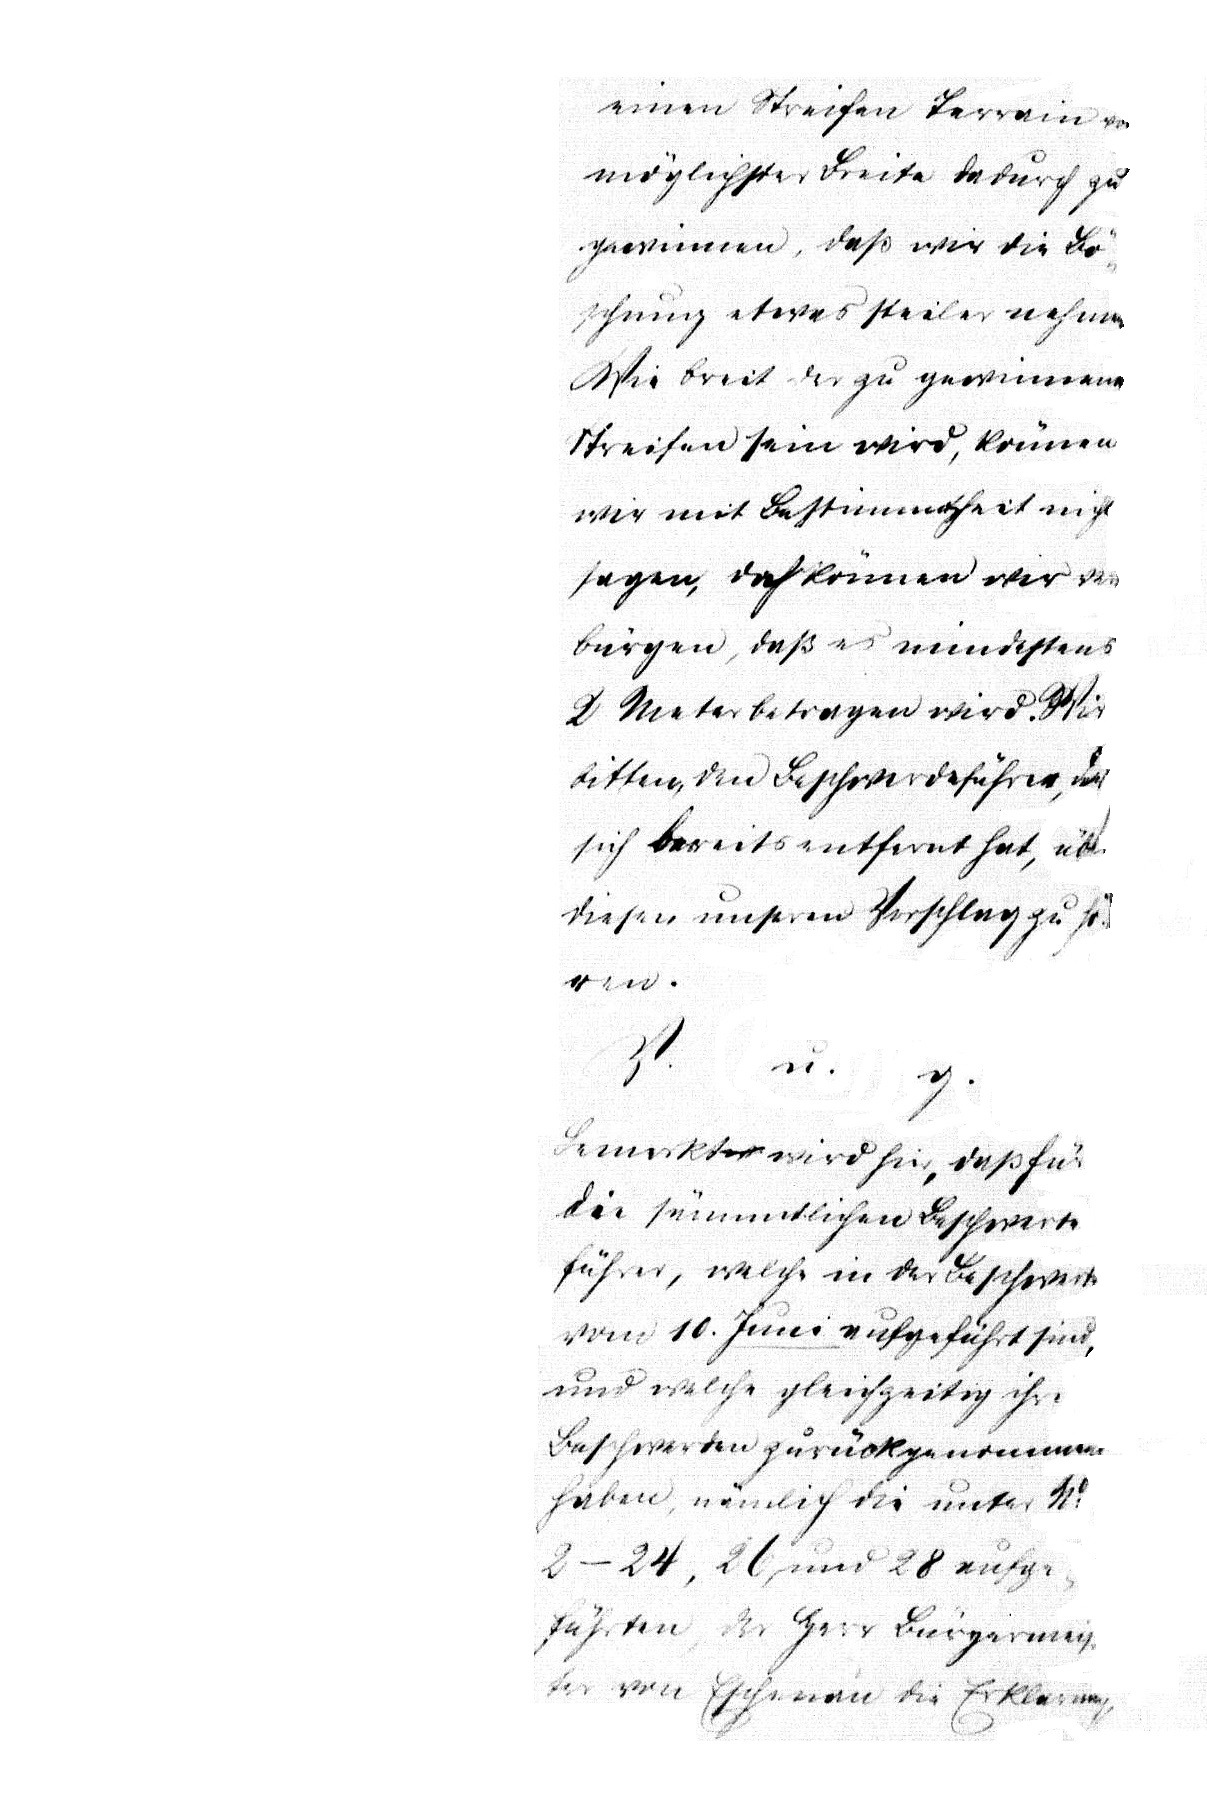 einen Streifen Terrain von
möglichster Breite dadurch zu
gewinnen, daß wir die Bö-
schung etwas steiler nehmen
Wie breit der zu gewinnene
Streifen sein wird, können
wir mit Bestimmtheit nicht
sagen, doch können wir ver
bürgen, daß es mindestens
2 Meter betragen wird. Wir
bitten, den Beschwerdeführer, der
sich bereits entfernt hat, über
diesen unseren Vorschlag zu hö-
ren.
V. u. g.
Bemerkt wird hier, daß für
die sämmtlichen Beschwerde
führer, welche in der Beschwerde
vom 10. Juni aufgeführt sind,
und welche gleichzeitig ihre
Beschwerden zurückgenommen
haben, nämlich die unter No
2 – 24, 26, und 28 aufge-
führten, der Herr Bürgermeis-
ter von Eschenau die Erklärung,